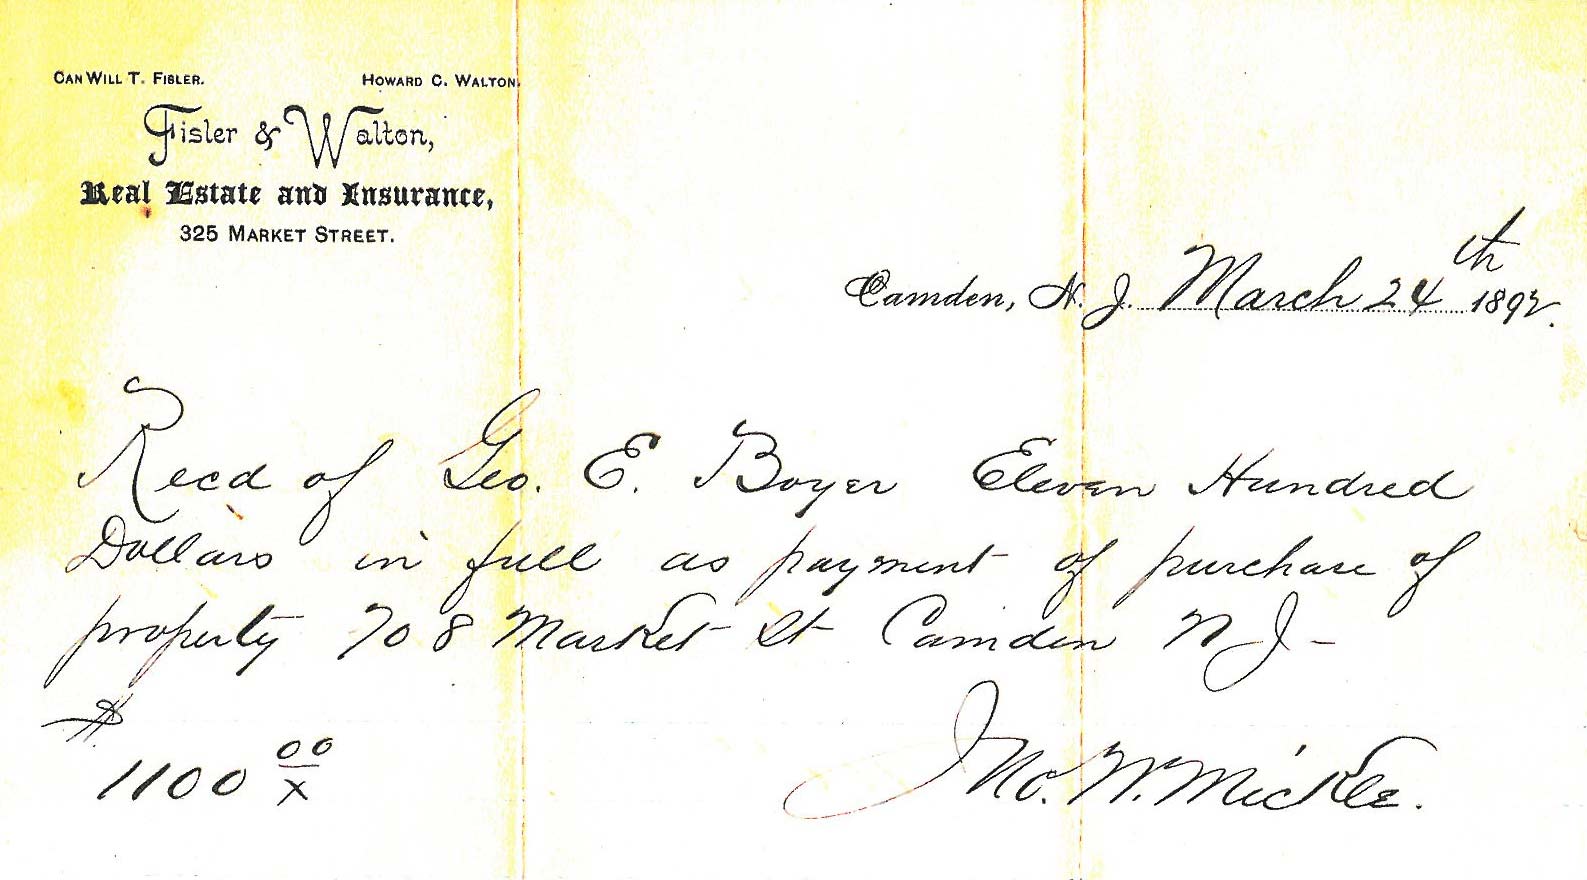 Can Will T. Fisler. Howard C. Walton.
Fisler & Walton,
Real Estate and Insurance,
325 Market Street.
Camden, N. J. March 24th 1892.
Recd of Geo. E. Boyer Eleven Hundred
Dollars in full as payment of purchase of
property 708 Market St Camden N J-
$
1100 00/x
Jno. W. Mickle.